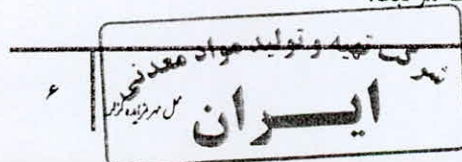 شرکت تهیه و تولید مواد معدنی
ایران
محل مهر مزایده گزار
۶